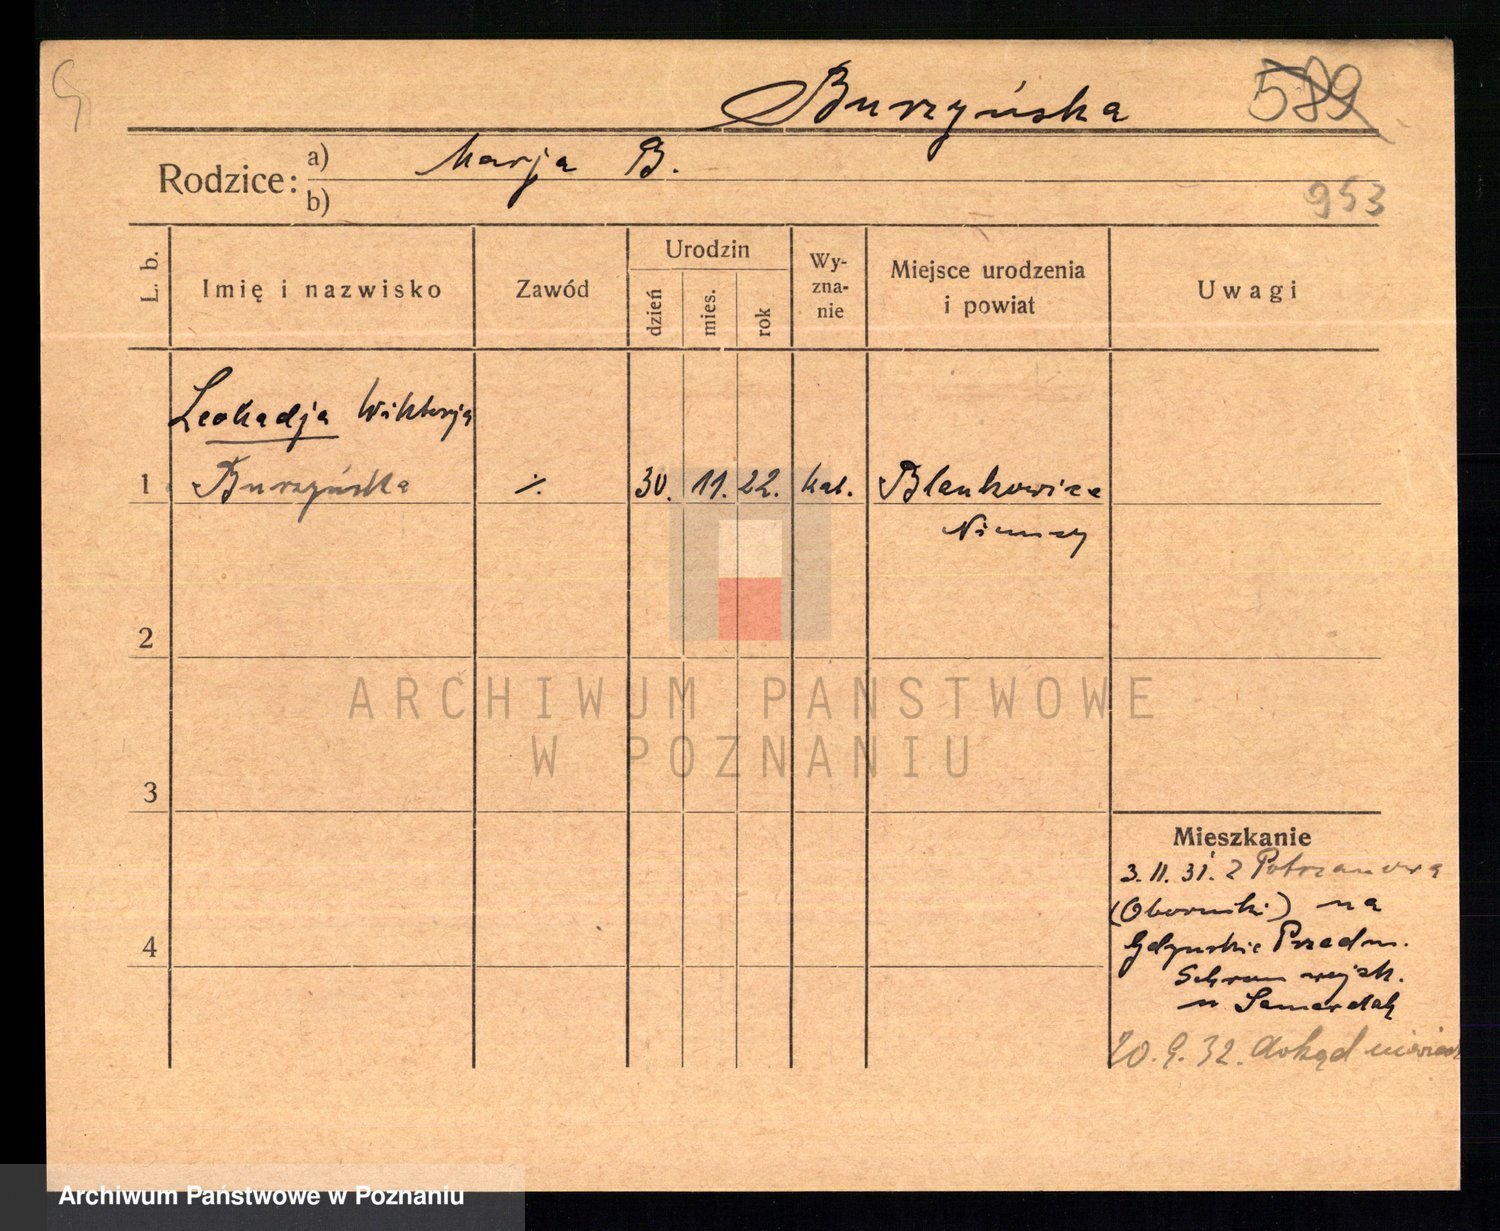 Burzyńska 589
Rodzice: a) Marja B.
b)
953
L. b.
Imię i nazwisko
Zawód
Urodzin
dzień
mies.
rok
Wy-
zna-
nie
Miejsce urodzenia
i powiat
Uwagi
Leokadja Wiktorja
1 Burzyńska ·/. 30. 11. 22. kat. Blankowice
Niemcy
2
ARCHIWUM PANSTWOWE
W POZNANIU
3
Mieszkanie
3. II. 31. z Potrzanowa
(Oborniki) na
Gdyńskie Przedm.
Schron wojsk.
4
20. 9. 32. dokąd
Archiwum Państwowe w Poznaniu